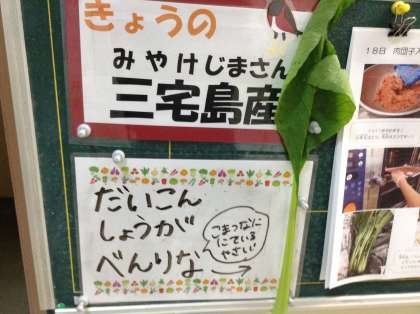 きょうの
みやけじまさん
三宅島産
だいこん
しょうが
べんりな
こまつなに
にている
やさい
18日 肉団子